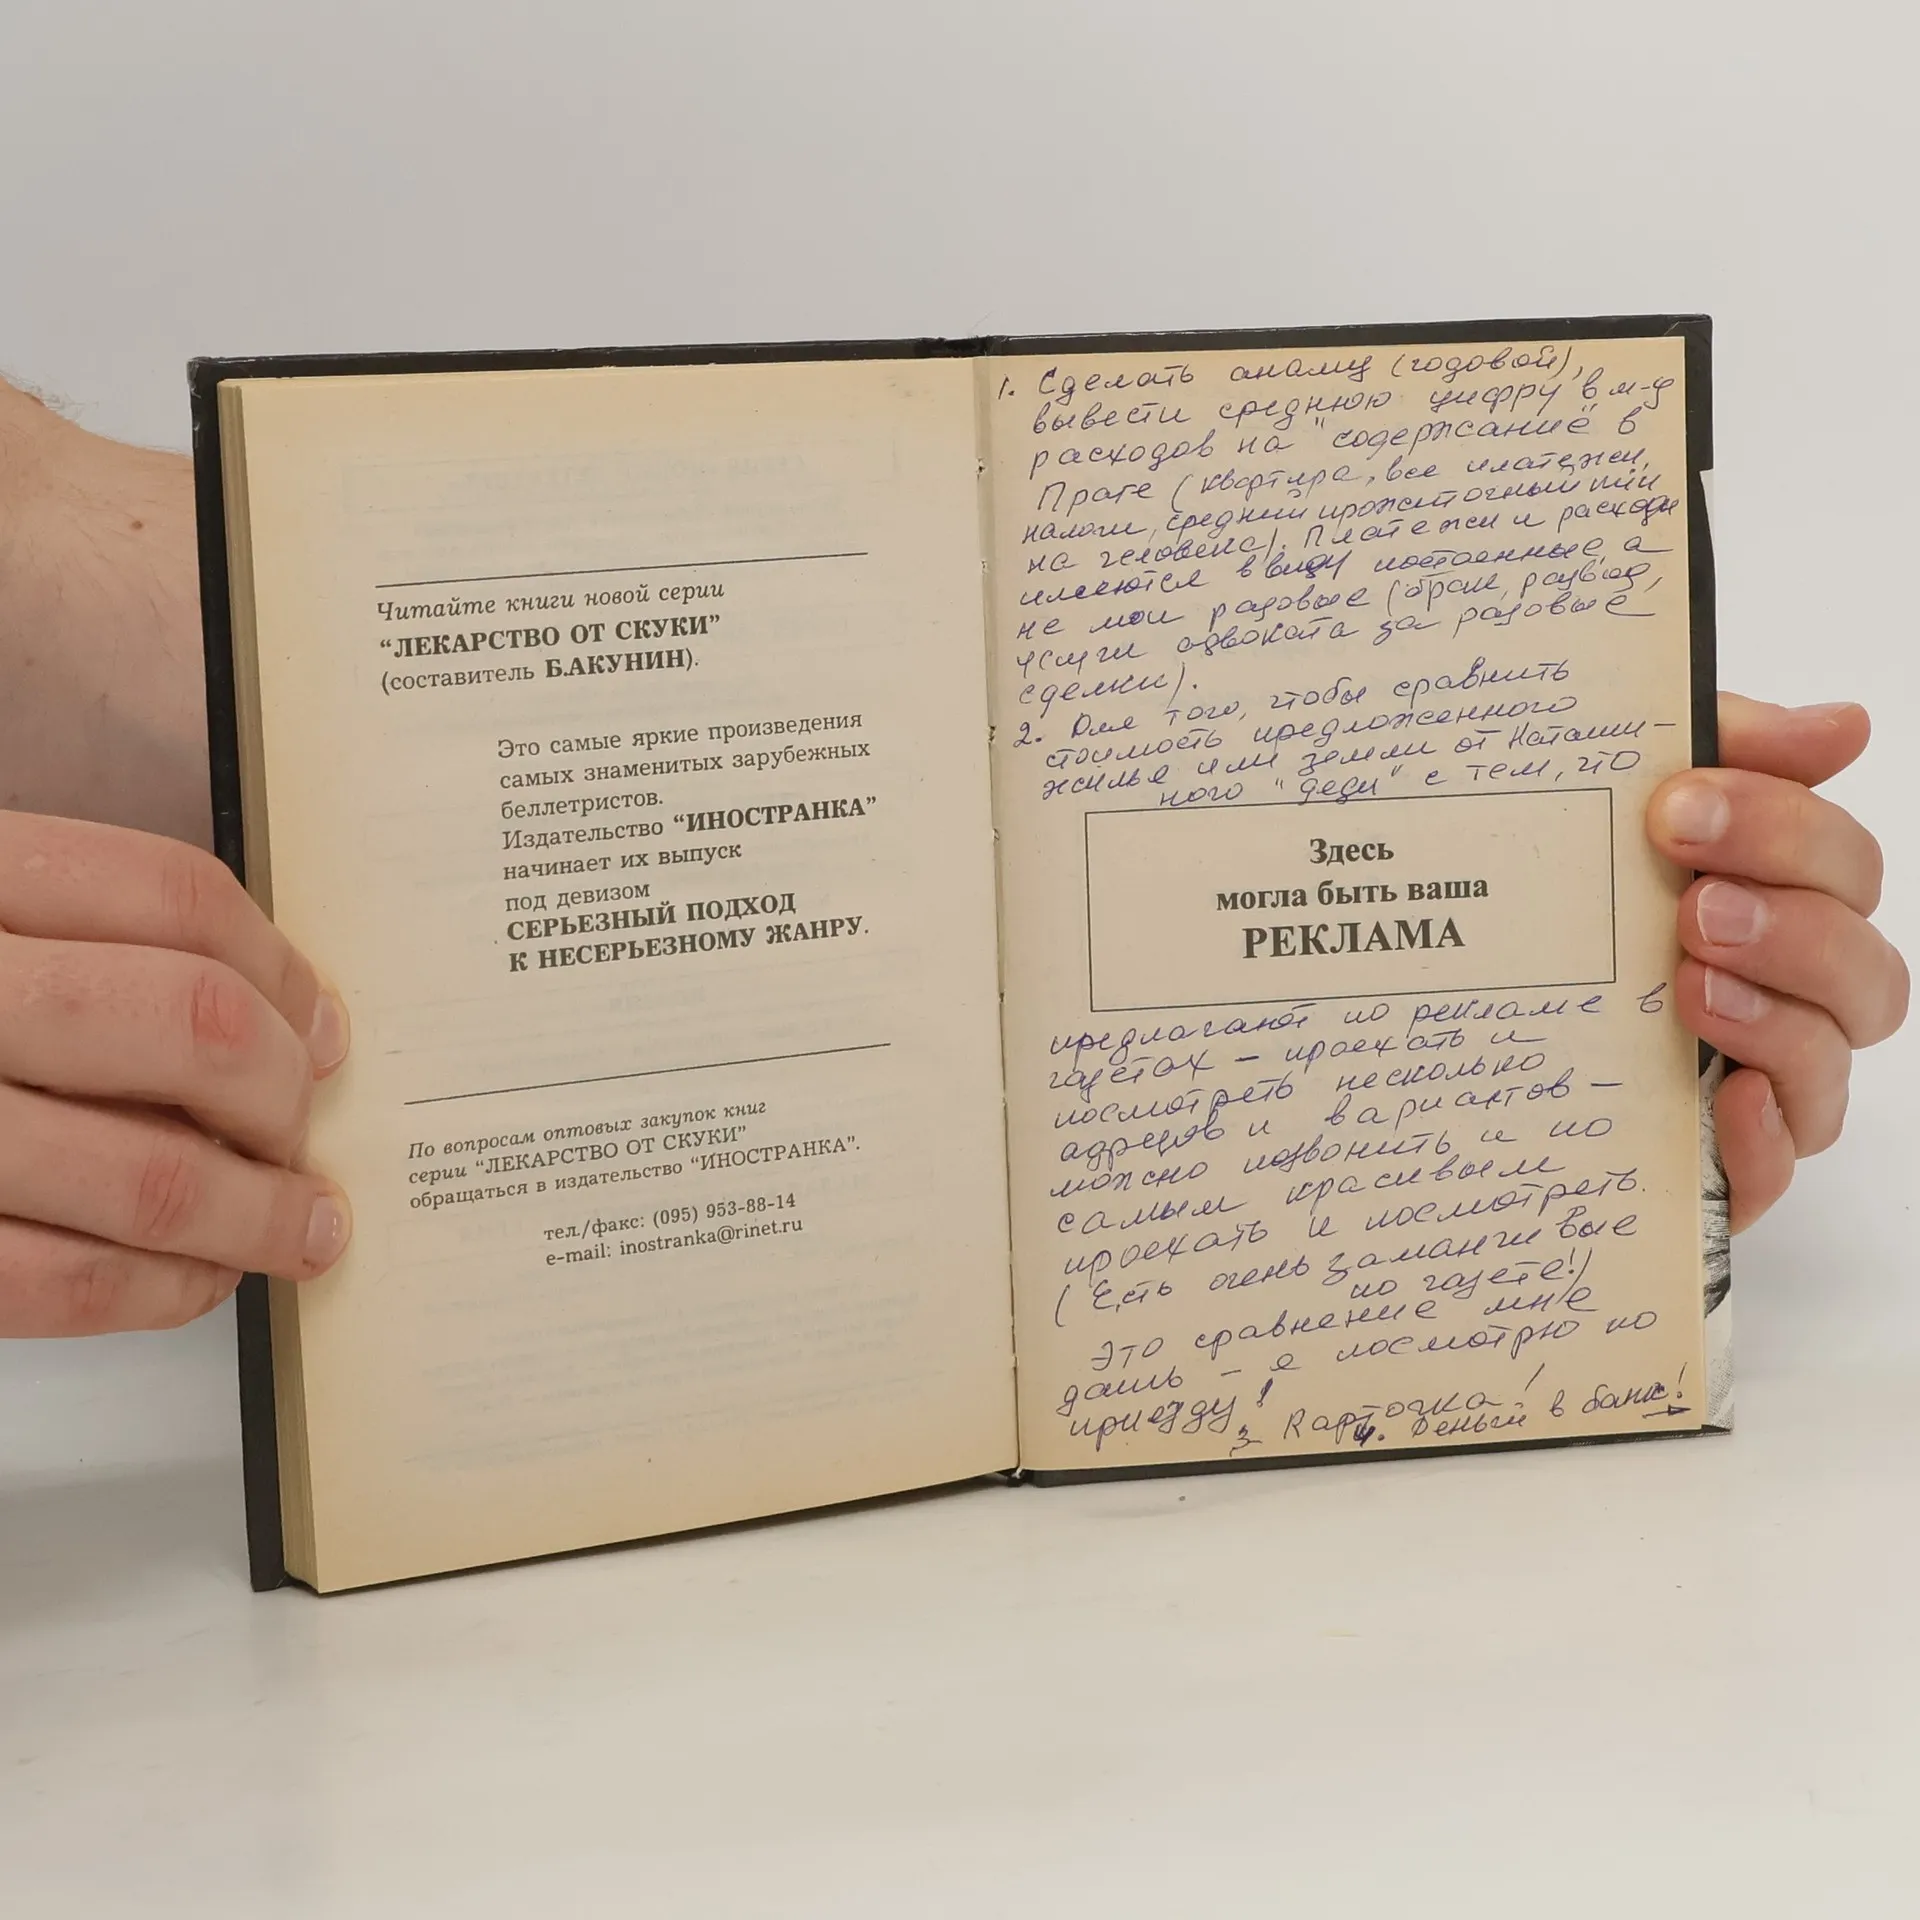 Читайте книги новой серии
“ЛЕКАРСТВО ОТ СКУКИ”
(составитель Б.АКУНИН).
Это самые яркие произведения
самых знаменитых зарубежных
беллетристов.
Издательство “ИНОСТРАНКА”
начинает их выпуск
под девизом
СЕРЬЕЗНЫЙ ПОДХОД
К НЕСЕРЬЕЗНОМУ ЖАНРУ.
По вопросам оптовых закупок книг
серии “ЛЕКАРСТВО ОТ СКУКИ”
обращаться в издательство “ИНОСТРАНКА”.
тел./факс: (095) 953-88-14
e-mail: inostranka@rinet.ru
1. Сделать анализ (годовой),
вывести среднюю цифру в м-ц
расходов на "содержание" в
Праге (квартира, все платежи,
налоги, средний прожиточный мин
на человека). Платежи и расходы
имеются ввиду постоянные, а
не мои разовые (брак, развод,
услуги адвоката за разовые
сделки).
2. Для того, чтобы сравнить
стоимость предложенного
жилья или земли от Наташи-
ного "деди" с тем, что
Здесь
могла быть ваша
РЕКЛАМА
предлагают по рекламе в
газетах – проехать и
посмотреть несколько
адресов и вариантов –
можно позвонить и по
самым красивым
проехать и посмотреть.
(Есть очень заманчивые
по газете!)
Это сравнение мне
дашь – я посмотрю по
приезду!
3. Карточка!
4. Деньги в банк!